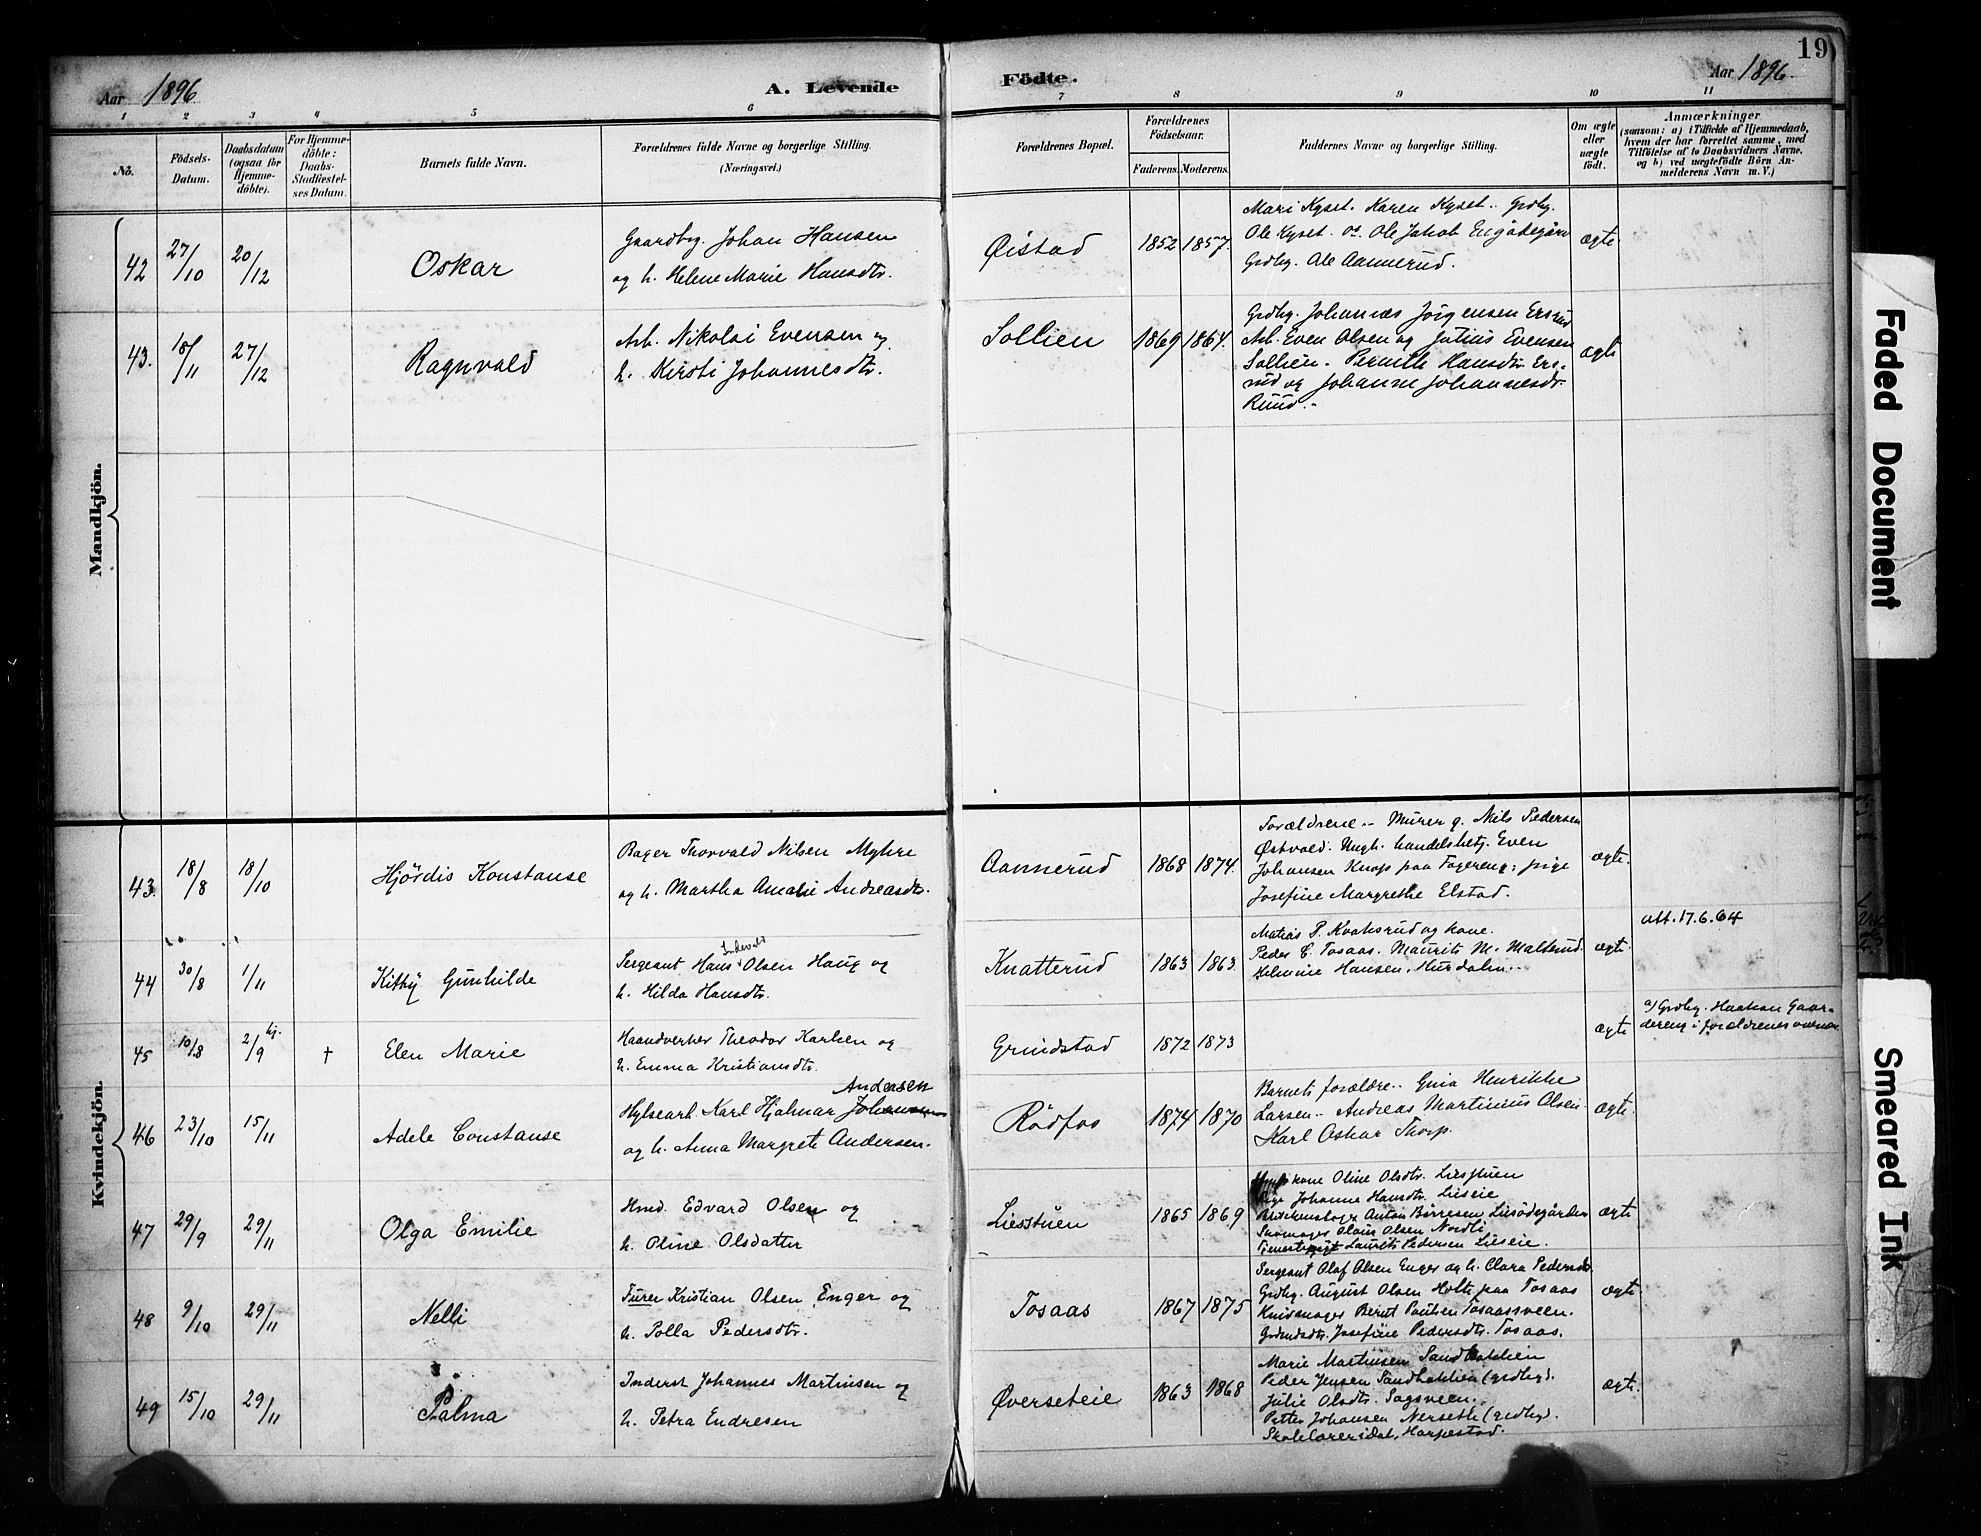 19
Aar 1896
A. Levende
Födte.
Aar 1896.
1 2 3 4 5 6 7 8 9 10 11
No.
Födsels-
Datum.
Daabsdatum
(ogsaa for
Hjemme-
döbte).
For Hjemme-
döbte:
Daabs-
Stadfæstel-
ses Datum.
Barnets fulde Navn.
Forældrenes fulde Navne og borgerlige Stilling.
(Næringsvei.)
Forældrenes Bopæl.
Forældrenes
Födselsaar.
Faderens.
Moderens.
Faddernes Navne og borgerlige Stilling.
Om ægte
eller
uægte
födt.
Anmærkninger
(saasom: a) i Tilfælde af Hjemmedaab,
hvem der har forrettet samme, med
Tilföielse af to Daabsvidners Navne,
og b) ved uægtefödte Börn An-
melderens Navn m. V.)
Mandkjön.
42 27/10 20/12
Oskar
Gaardbrg. Johan Hansen
og h. Helene Marie Hansdtr.
Øistad
1852 1857.
Mari Kyset. Karen Kyset. Grdbg.
Ole Kyset. Ole Jakob
Grdbg. Ole Aannerud.
ægte
43. 18/11 27/12
Ragnvald
Arb. Nikolai Evensen og
h. Kirsti Johannesdtr.
Sollien
1869 1864.
Grdbg. Johannes Jörgensen Ersrud
Arb. Even Olsen og Julius Evensen
Sollien. Pernille Hansdtr. Ers-
rud og Johanne Johannesdtr.
Ruud.
ægte
Kvindekjön.
43. 18/8 18/10
Hjördis Konstanse
Bager Thorvald Nilsen Myhre
og h. Martha Amalie Andreasdtr.
Aannerud
1868 1874.
Forældrene. Murer g. Nils Pedersen
Østvold. Ungk. handelsbetj. Even
Johansen Knap paa Fagereng; pige
Josefine Margrethe Elstad.
ægte.
44 30/8 1/11
Kithy Gunhilde
Sergeant Hans Olsen Haug og
h. Hilda Hansdtr.
Knatterud
1863 1863.
Matias P. Kvaksrud og kone.
Peder C. Tosaas. Maurits M. Malterud.
Helmine Hansen, Hurdalen.
ægte.
att. 17.6.64
45 10/8 2/9 hj.
+
Elen Marie
Haandverker Theodor Karlsen og
h. Emma Kristiansdtr.
Grindstad
1872 1873
ægte
a) Grdbg. Haakan Gaar-
dereng i forældrenes
46 23/10 15/11
Adele Constanse
Andersen
Hylsearb. Karl Hjalmar Johansen
og h. Anna Margrete Andersen.
Rödfos
1874 1870
Barnets forældre. Gina Henrikke
Larsen. Andreas Martinius Olsen.
Karl Oskar Thorp.
ægte.
47 29/9 29/11
Olga Emilie
Hmd. Edvard Olsen og
h. Oline Olsdatter
Liesstuen
1865 1869
kone Oline Olsdtr. Liesstuen
Pige Johanne Hansdtr. Lieseie
Anton Börresen Liesödegården
Skomager Olaus Olsen Nordli
Laurits Pedersen Lieseie.
ægte
48 9/10 29/11
Nelli
Furer Kristian Olsen Enger og
h. Polla Pedersdtr.
Tosaas
1867 1875
Sergeant Olaf Olsen Enger og h. Clara Pedersdtr.
Grdbg. August Olsen Holte paa Tosaas
Knivmager Bernt Paulsen Tosaasveen.
Josefine Pedersdtr. Tosaas.
ægte
49 15/10 29/11
Palma
Inderst Johannes Martinsen og
h. Petra Endresen
Øverseteie
1863 1868
Marie Martinsen Sandbakken
Peder Jensen Sandbakken (grdbg).
Julie Olsdtr. Sagsveen.
Petter Johansen Nerseth (grdbg).
Harpestad.
ægte.
Faded Document
Smeared Ink